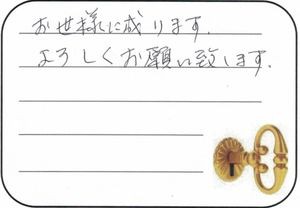 お世様に成ります.
よろしくお願い致します.